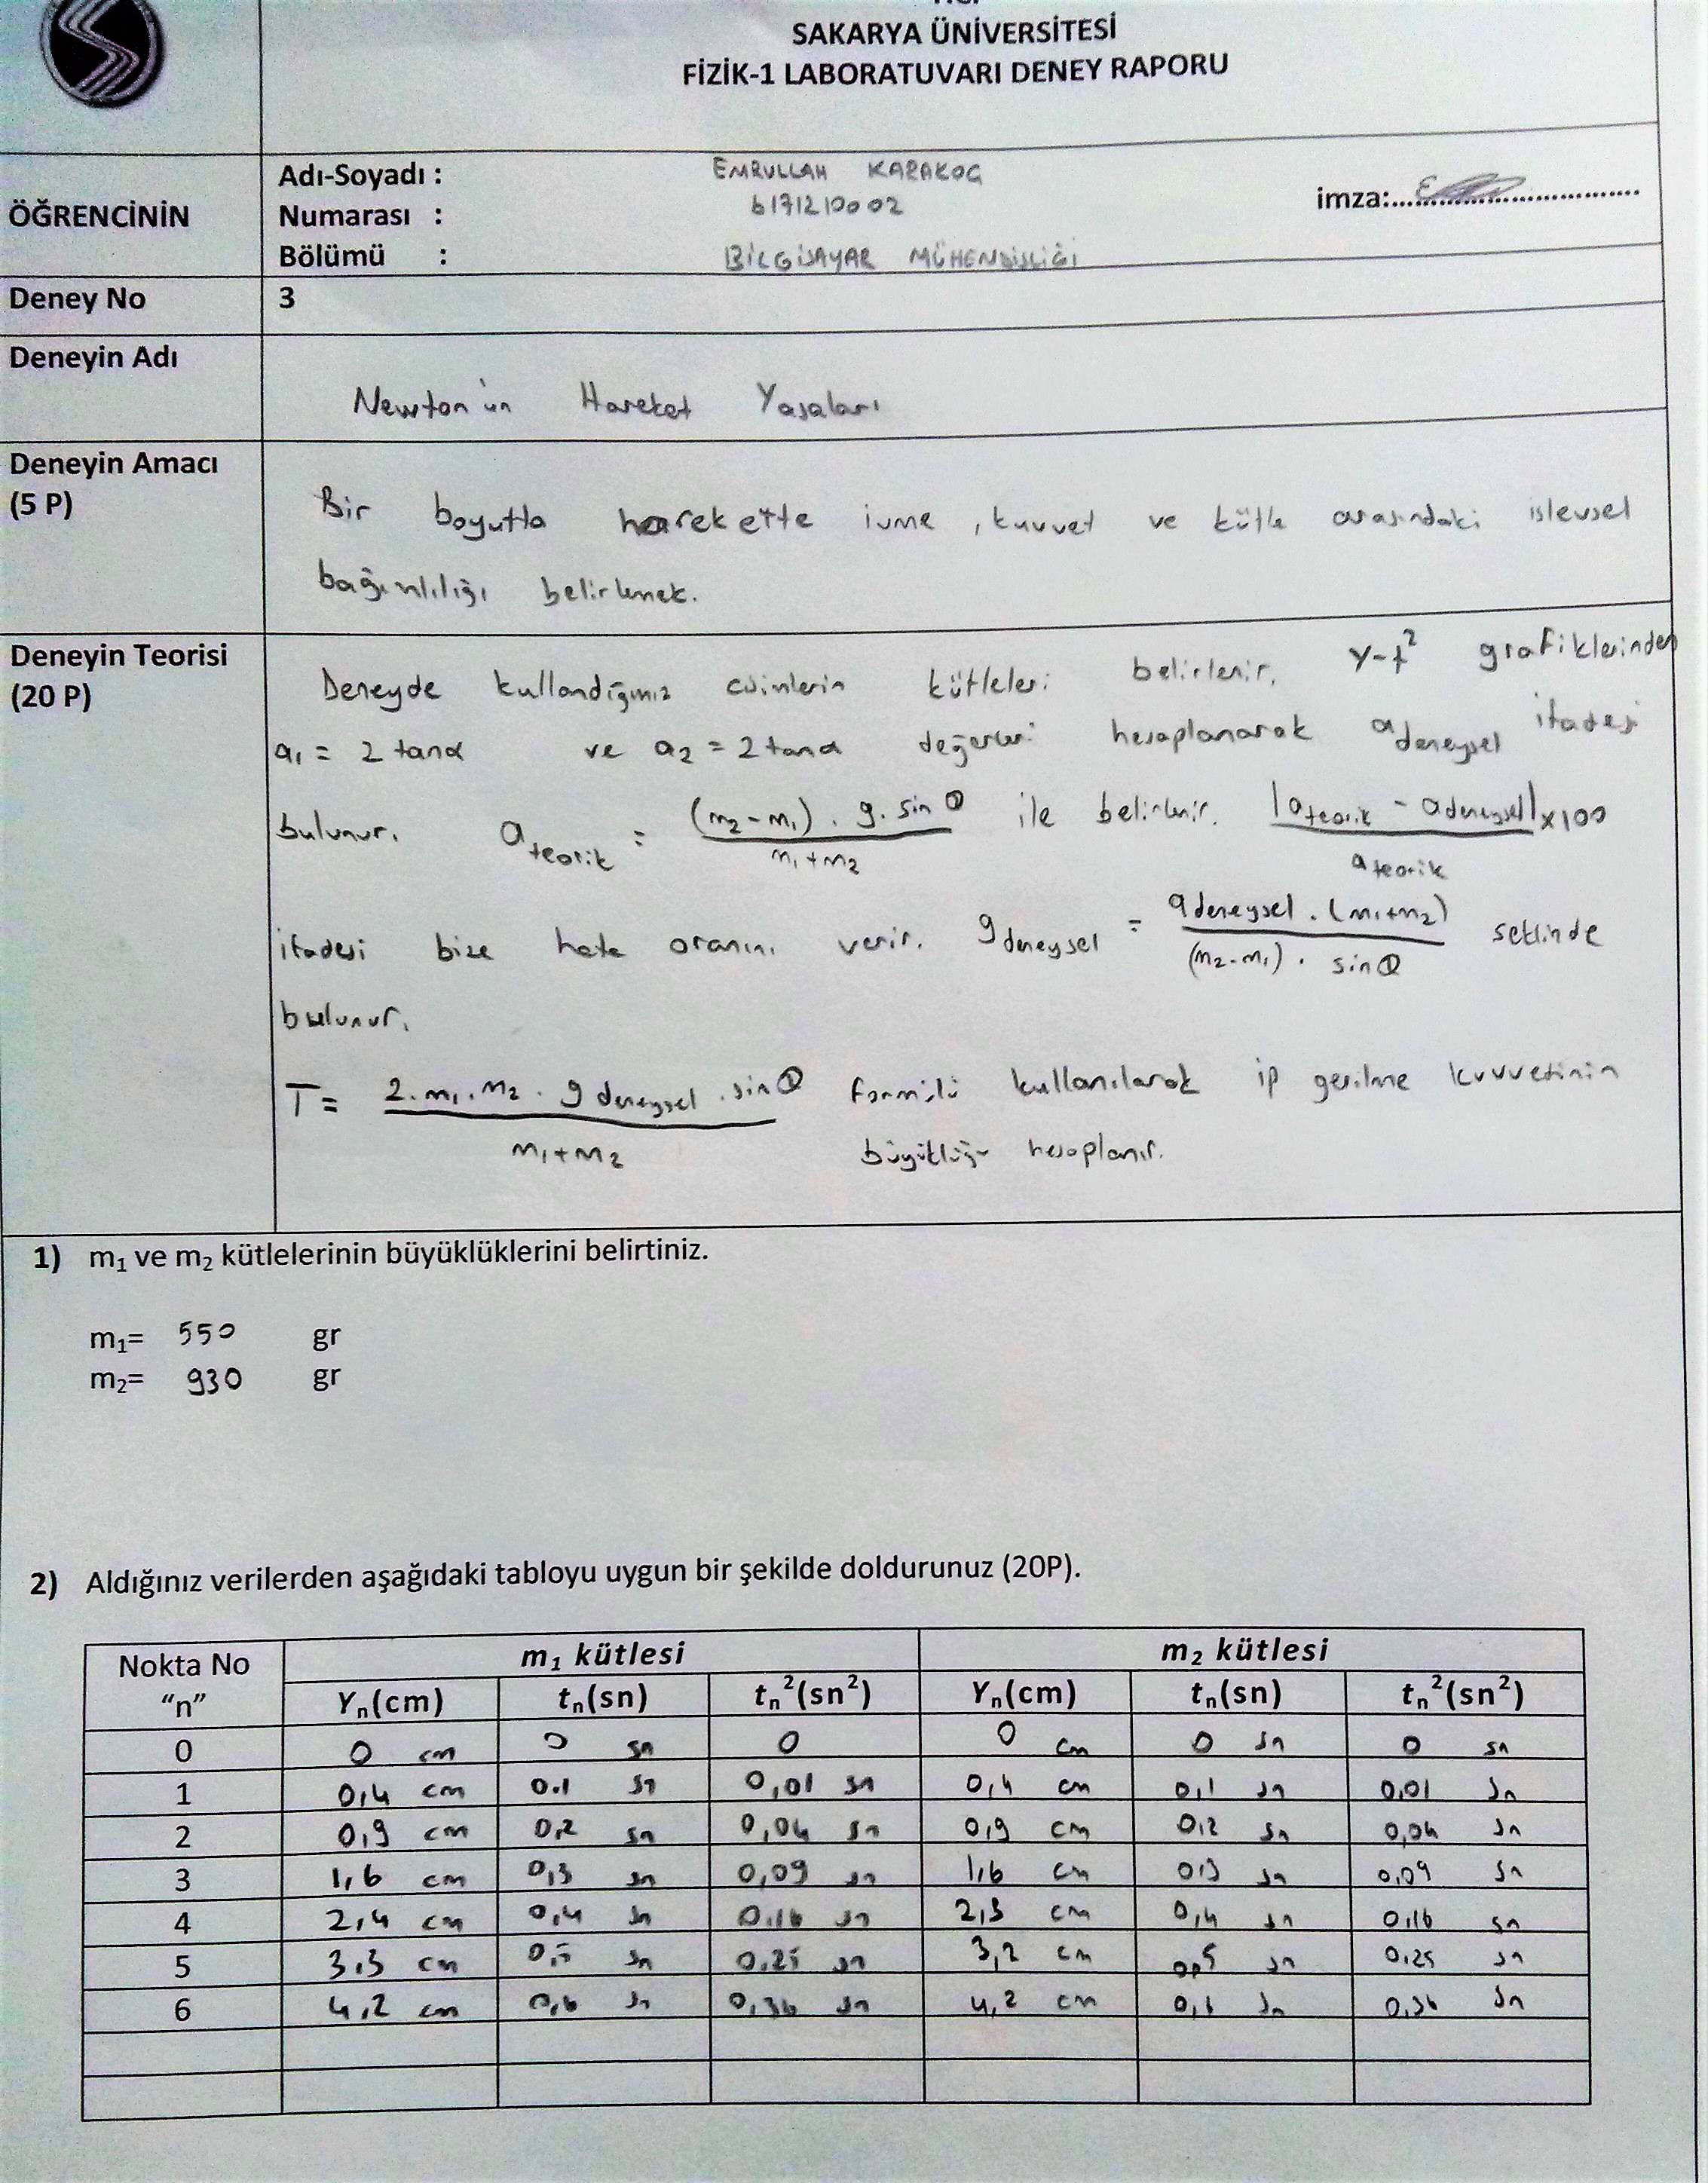 SAKARYA ÜNİVERSİTESİ
FİZİK-1 LABORATUVARI DENEY RAPORU
ÖĞRENCİNİN
Adı-Soyadı : EMRULLAH KARAKOÇ
Numarası : b171210002
Bölümü : BİLGİSAYAR MÜHENDİSLİĞİ
imza:
Deney No 3
Deneyin Adı
Newton'un Hareket Yasaları
Deneyin Amacı
(5 P)
Bir boyutla harekette ivme, kuvvet ve kütle arasındaki işlevsel
bağımlılığı belirlemek.
Deneyin Teorisi
(20 P)
Deneyde kullandığımız cisimlerin kütleleri belirlenir. y-t² grafiklerinden
a₁ = 2 tanα ve a₂ = 2 tanα değerleri hesaplanarak a deneysel ifadesi
bulunur. a teorik = (m₂-m₁) . g . sin θ / m₁+m₂ ile belirlenir. |a teorik - a deneysel| / a teorik x100
ifadesi bize hata oranını verir. g deneysel = a deneysel . (m₁+m₂) / (m₂-m₁) . sin θ şeklinde
bulunur.
T = 2 . m₁ . m₂ . g deneysel . sin θ / m₁+m₂ formülü kullanılarak ip gerilme kuvvetinin
büyüklüğü hesaplanır.
1) m₁ ve m₂ kütlelerinin büyüklüklerini belirtiniz.
m₁= 550 gr
m₂= 930 gr
2) Aldığınız verilerden aşağıdaki tabloyu uygun bir şekilde doldurunuz (20P).
Nokta No "n" m₁ kütlesi m₂ kütlesi
Yₙ(cm) tₙ(sn) tₙ²(sn²) Yₙ(cm) tₙ(sn) tₙ²(sn²)
0 0 cm 0 sn 0 0 cm 0 sn 0 sn
1 0,4 cm 0.1 sn 0,01 sn 0,4 cm 0,1 sn 0,01 sn
2 0,9 cm 0,2 sn 0,04 sn 0,9 cm 0,2 sn 0,04 sn
3 1,6 cm 0,3 sn 0,09 sn 1,6 cm 0,3 sn 0,09 sn
4 2,4 cm 0,4 sn 0,16 sn 2,3 cm 0,4 sn 0,16 sn
5 3,3 cm 0,5 sn 0,25 sn 3,2 cm 0,5 sn 0,25 sn
6 4,2 cm 0,6 sn 0,36 sn 4,2 cm 0,6 sn 0,36 sn